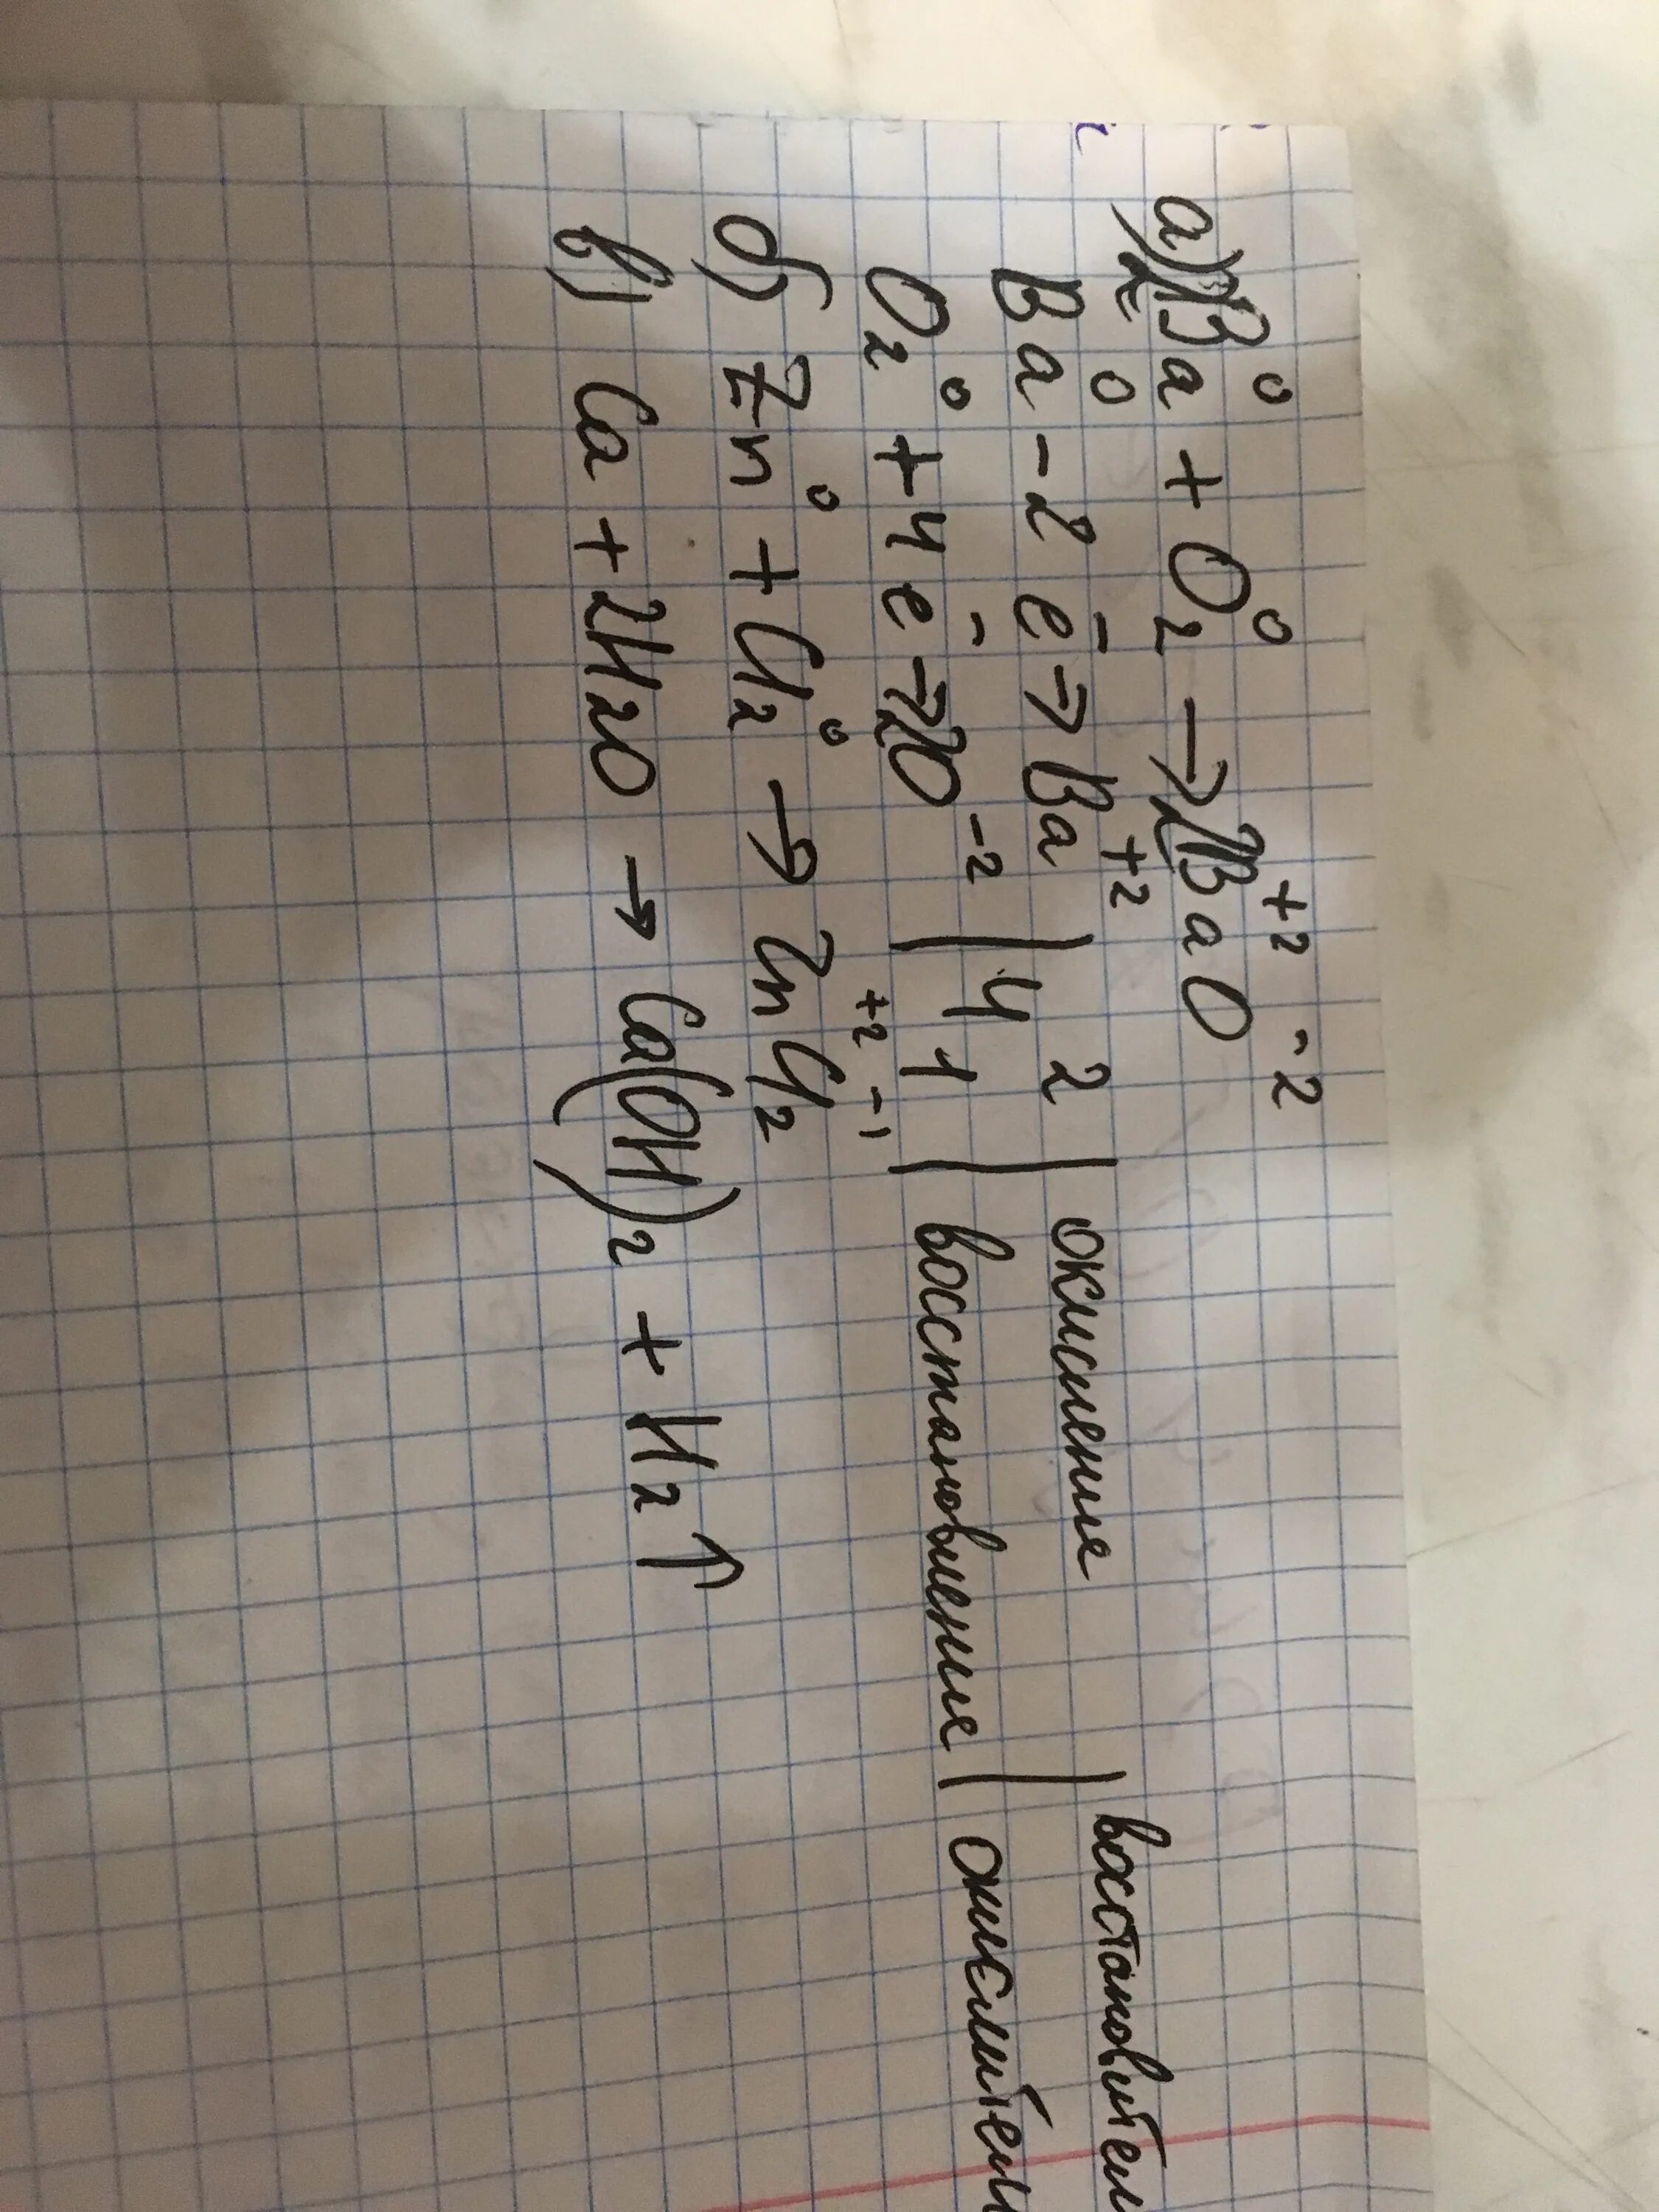 а) 2Ba⁰ + O₂⁰ → 2Ba⁺²O⁻²
Ba⁰ - 2ē → Ba⁺² | 2 | окисление | восстановител
O₂⁰ + 4ē → 2O⁻² | 4 1 | востановление | окислител
б) Zn⁰ + Cl₂⁰ → Zn⁺²Cl₂⁻¹
в) Ca + 2H₂O → Ca(OH)₂ + H₂↑